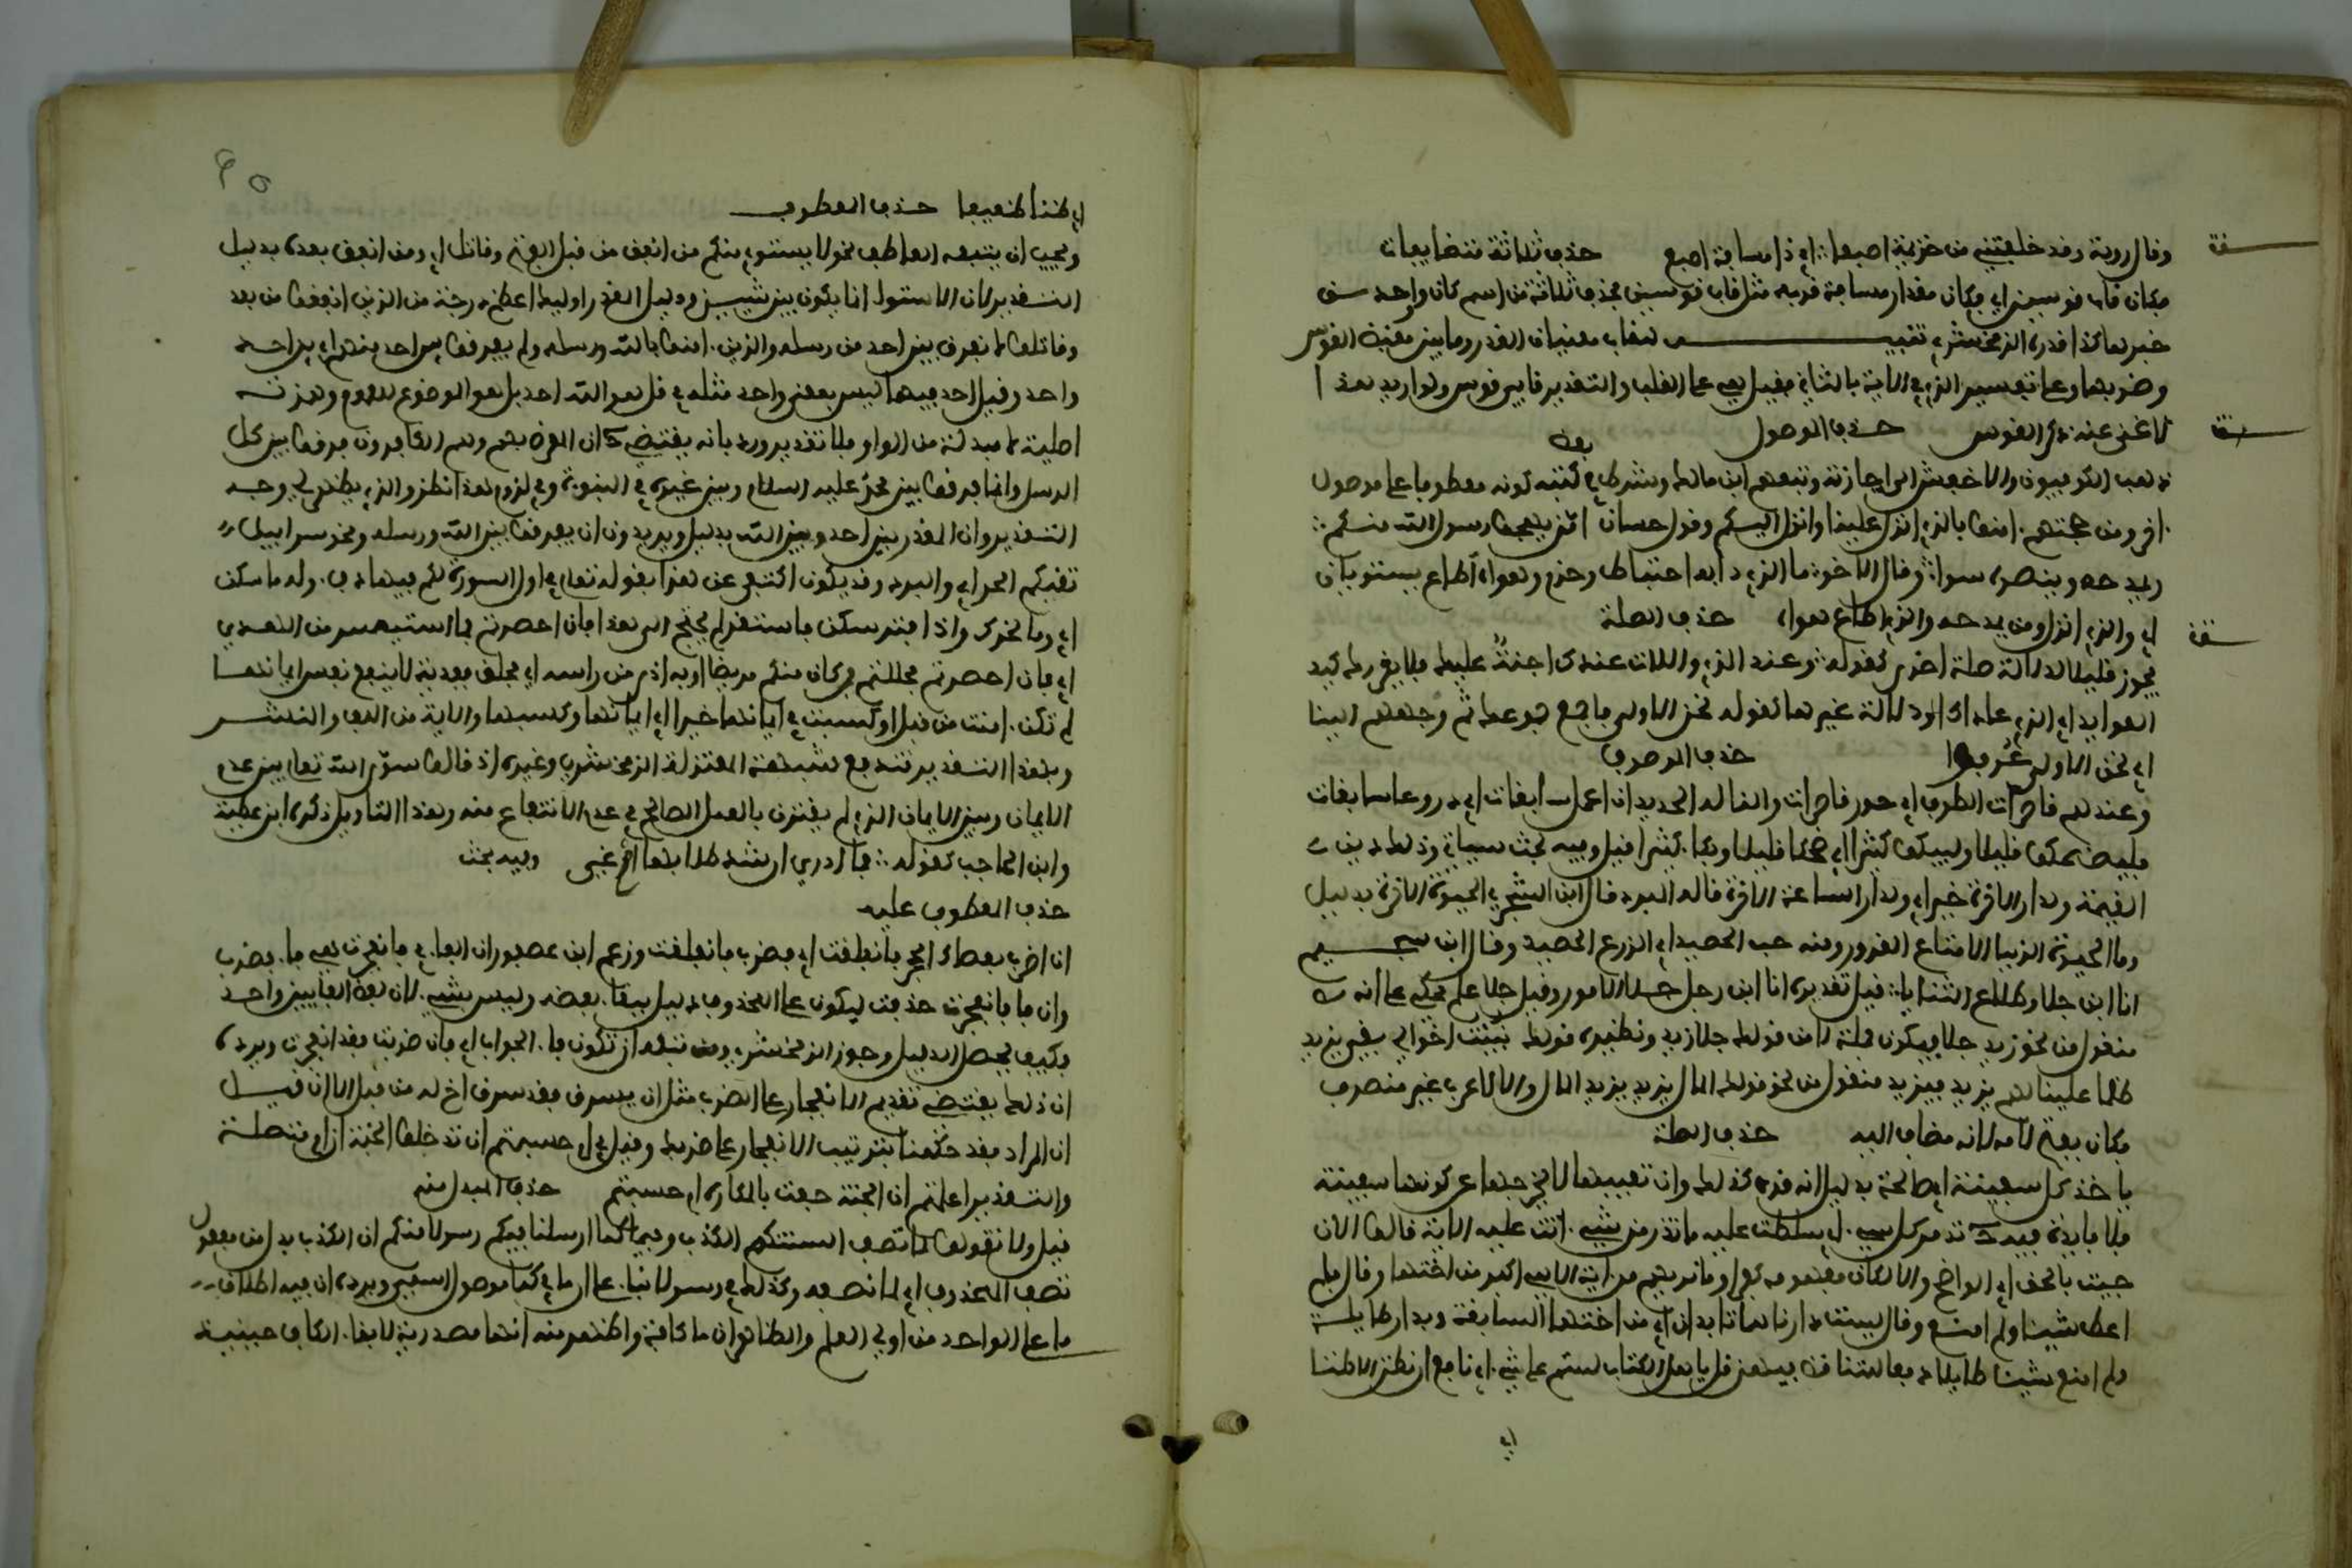 وقال رؤية وقد خلفتني من خزيمة اصبعا أي ذا مسافة اصبع حذف ثلاثة متضايفات
فكان قاب قوسين أي فكان مقدار مسافة قربه مثل قاب قوسين فحذف ثلاثة من اسم كان وواحد من
خبرها كذا قدره الزمخشري تنبيه للقاب معنيان القدر وما بين مقبض القوس
وطرفها وعلى تفسير الذي في الاية بالثاني فقيل هي على القلب والتقدير قابي قوس ولو اريد هذا
لاغنى عنه ذكر القوس حذف الموصول
ذهب الكوفيون والاخفش الى اجازته وتبعهم ابن مالك وشرط في بعض كتبه كونه معطوفا على موصول
اخر ومن حجتهم امنوا بالذي انزل علينا وانزل اليكم وقول حسان امن يهجوا رسول الله منكم
ويمدحه وينصره سواء وقال الاخر ما الذي دابه احتياط وحزم وهواه اطاع يستويان
أي والذي انزل ومن يمدحه والذي اطاع هواه حذف الصلة
يجوز قليلا لدلالة صلة اخرى كقوله وعند الذي واللات عندك احنة عليك فلا يغررك كيد
العوايد أي الذي عادك او دلالة غيرها كقوله نحن الاولى فاجمع جموعك ثم وجههم الينا
أي نحن الاولى عرفوا حذف الموصوف
وعندهم قاصرات الطرف أي حور قاصرات والنا له الحديد ان اعمل سابغات أي دروعا سابغات
فليضحكوا قليلا وليبكوا كثيرا أي ضحكا قليلا وبكاء كثيرا قيل وفيه بحث سياتي وذلك دين
القيمة ولدار الاخرة خير أي ولدار الساعة الاخرة قاله المبرد قال ابن الشجري الحيوة الاخرة بدليل
وما الحيوة الدنيا الا متاع الغرور ومنه حب الحصيد أي الزرع الحصيد وقال ابن سحيم
انا ابن جلا وطلاع الثنايا قيل تقديره انا ابن رجل جلا الامور وقيل جلا علم محكي على انه
منقول من نحو زيد جلا فيكون جملة لا من قولك جلا زيد ونظيره قوله نبئت اخوالي بني يزيد
ظلما علينا لهم يزيد فيزيد منقول من نحو قولك المال يزيد لا من قولك يزيد المال والا لاعرب غير منصرف
فكان يفتح لانه مضاف اليه حذف الصفة
ياخذ كل سفينة أي صالحة بدليل انه قرئ كذلك وان تعييبها لا يخرجها عن كونها سفينة
فلا فايدة فيه ح تدمر كل شيء أي سلطت عليه ما تذر من شيء اتت عليه الاية قالوا الان
جيت بالحق أي الواضح والا لكان مفهومه كفرا وما نريهم من اية الا هي اكبر من اختها وقال فلم
اعط شيئا ولم امنع وقال ليست دارنا هاتا بدار أي من اختها السابقة وبدار طايلة
ولم امنع شيئا طايلا دفعا للتناقض فيهن قل يا اهل الكتاب لستم على شيء أي نافع ان نظن الا ظنا
أي
أي ظنا ضعيفا حذف المعطوف
ويجب ان يتبعه العاطف نحو لا يستوي منكم من انفق من قبل الفتح وقاتل أي ومن انفق بعده بدليل
التقدير لان الاستواء انما يكون بين شيئين ودليل المقدر اوليك اعظم درجة من الذين انفقوا من بعد
وقاتلوا لا نفرق بين احد من رسله والذين امنوا بالله ورسله ولم يفرقوا بين احد منهم أي بين احد
واحد وقيل احد فيهما ليس بمعنى واحد مثله في قل هو الله احد بل هو الموضوع للعموم وهمزته
اصلية لا مبدلة من الواو فلا تقدير ورد بانه يقتضي ح ان المعرض بهم وهم الكافرون فرقوا بين كل
الرسل وانما فرقوا بين محمد عليه السلام وبين غيره في النبوة وفي لزوم هذا نظر والذي يظهر لي وجه
التقدير وان المقدر بين احد وبين الله بدليل ويريدون ان يفرقوا بين الله ورسله ونحو سرابيل
تقيكم الحر أي والبرد وقد يكون اكتفي عن هذا بقوله تعالى في اول السورة لكم فيها دفء وله ما سكن
أي وما تحرك واذا فسر سكن باستقر لم يحتج الى هذا فان احصرتم فما استيسر من الهدي
أي فان احصرتم فحللتم فمن كان منكم مريضا او به اذى من راسه أي فحلق ففدية لا ينفع نفسا ايمانها
لم تكن امنت من قبل او كسبت في ايمانها خيرا أي ايمانها وكسبها والاية من اللف والنشر
وبهذا التقدير تندفع شبهة المعتزلة الزمخشري وغيره اذ قالوا سوى الله تعالى بين عدم
الايمان وبين الايمان الذي لم يقترن بالعمل الصالح في عدم الانتفاع منه وهذا التاويل ذكره ابن عطية
وابن الحاجب كقوله فما ادري ارشد طلابها أي ام غي وفيه بحث
حذف المعطوف عليه
ان اضرب بعصاك الحجر فانفلقت أي فضرب فانفلقت وزعم ابن عصفور ان الفاء في فانفجرت هي فاء فضرب
وان فاء فانفجرت حذفت ليكون على المحذوف دليل ببقاء بعضه وليس بشيء لان لفظ الفاءين واحد
فكيف يحصل الدليل وجوز الزمخشري ومن تبعه ان تكون فاء الجواب أي فان ضربت فقد انفجرت ويرده
ان ذلك يقتضي تقديم الانفجار على الضرب مثل ان يسرق فقد سرق اخ له من قبل الا ان قيل
ان المراد فقد حكمنا بترتيب الانفجار على ضربك وقيل في ام حسبتم ان تدخلوا الجنة ان ام متصلة
والتقدير اعلمتم ان الجنة حفت بالمكاره ام حسبتم حذف المبدل منه
قيل ولا تقولوا لما تصف السنتكم الكذب وفي كما ارسلنا فيكم رسولا منكم ان الكذب بدل من مفعول
تصف المحذوف أي لما تصفه وكذلك في رسولا بناء على ان ما في كما موصول اسمي ويرده ان فيه اطلاق
ما على الواحد من اولي العلم والظاهر ان ما كافة واظهر منه انها مصدرية لابقاء الكاف حينئذ